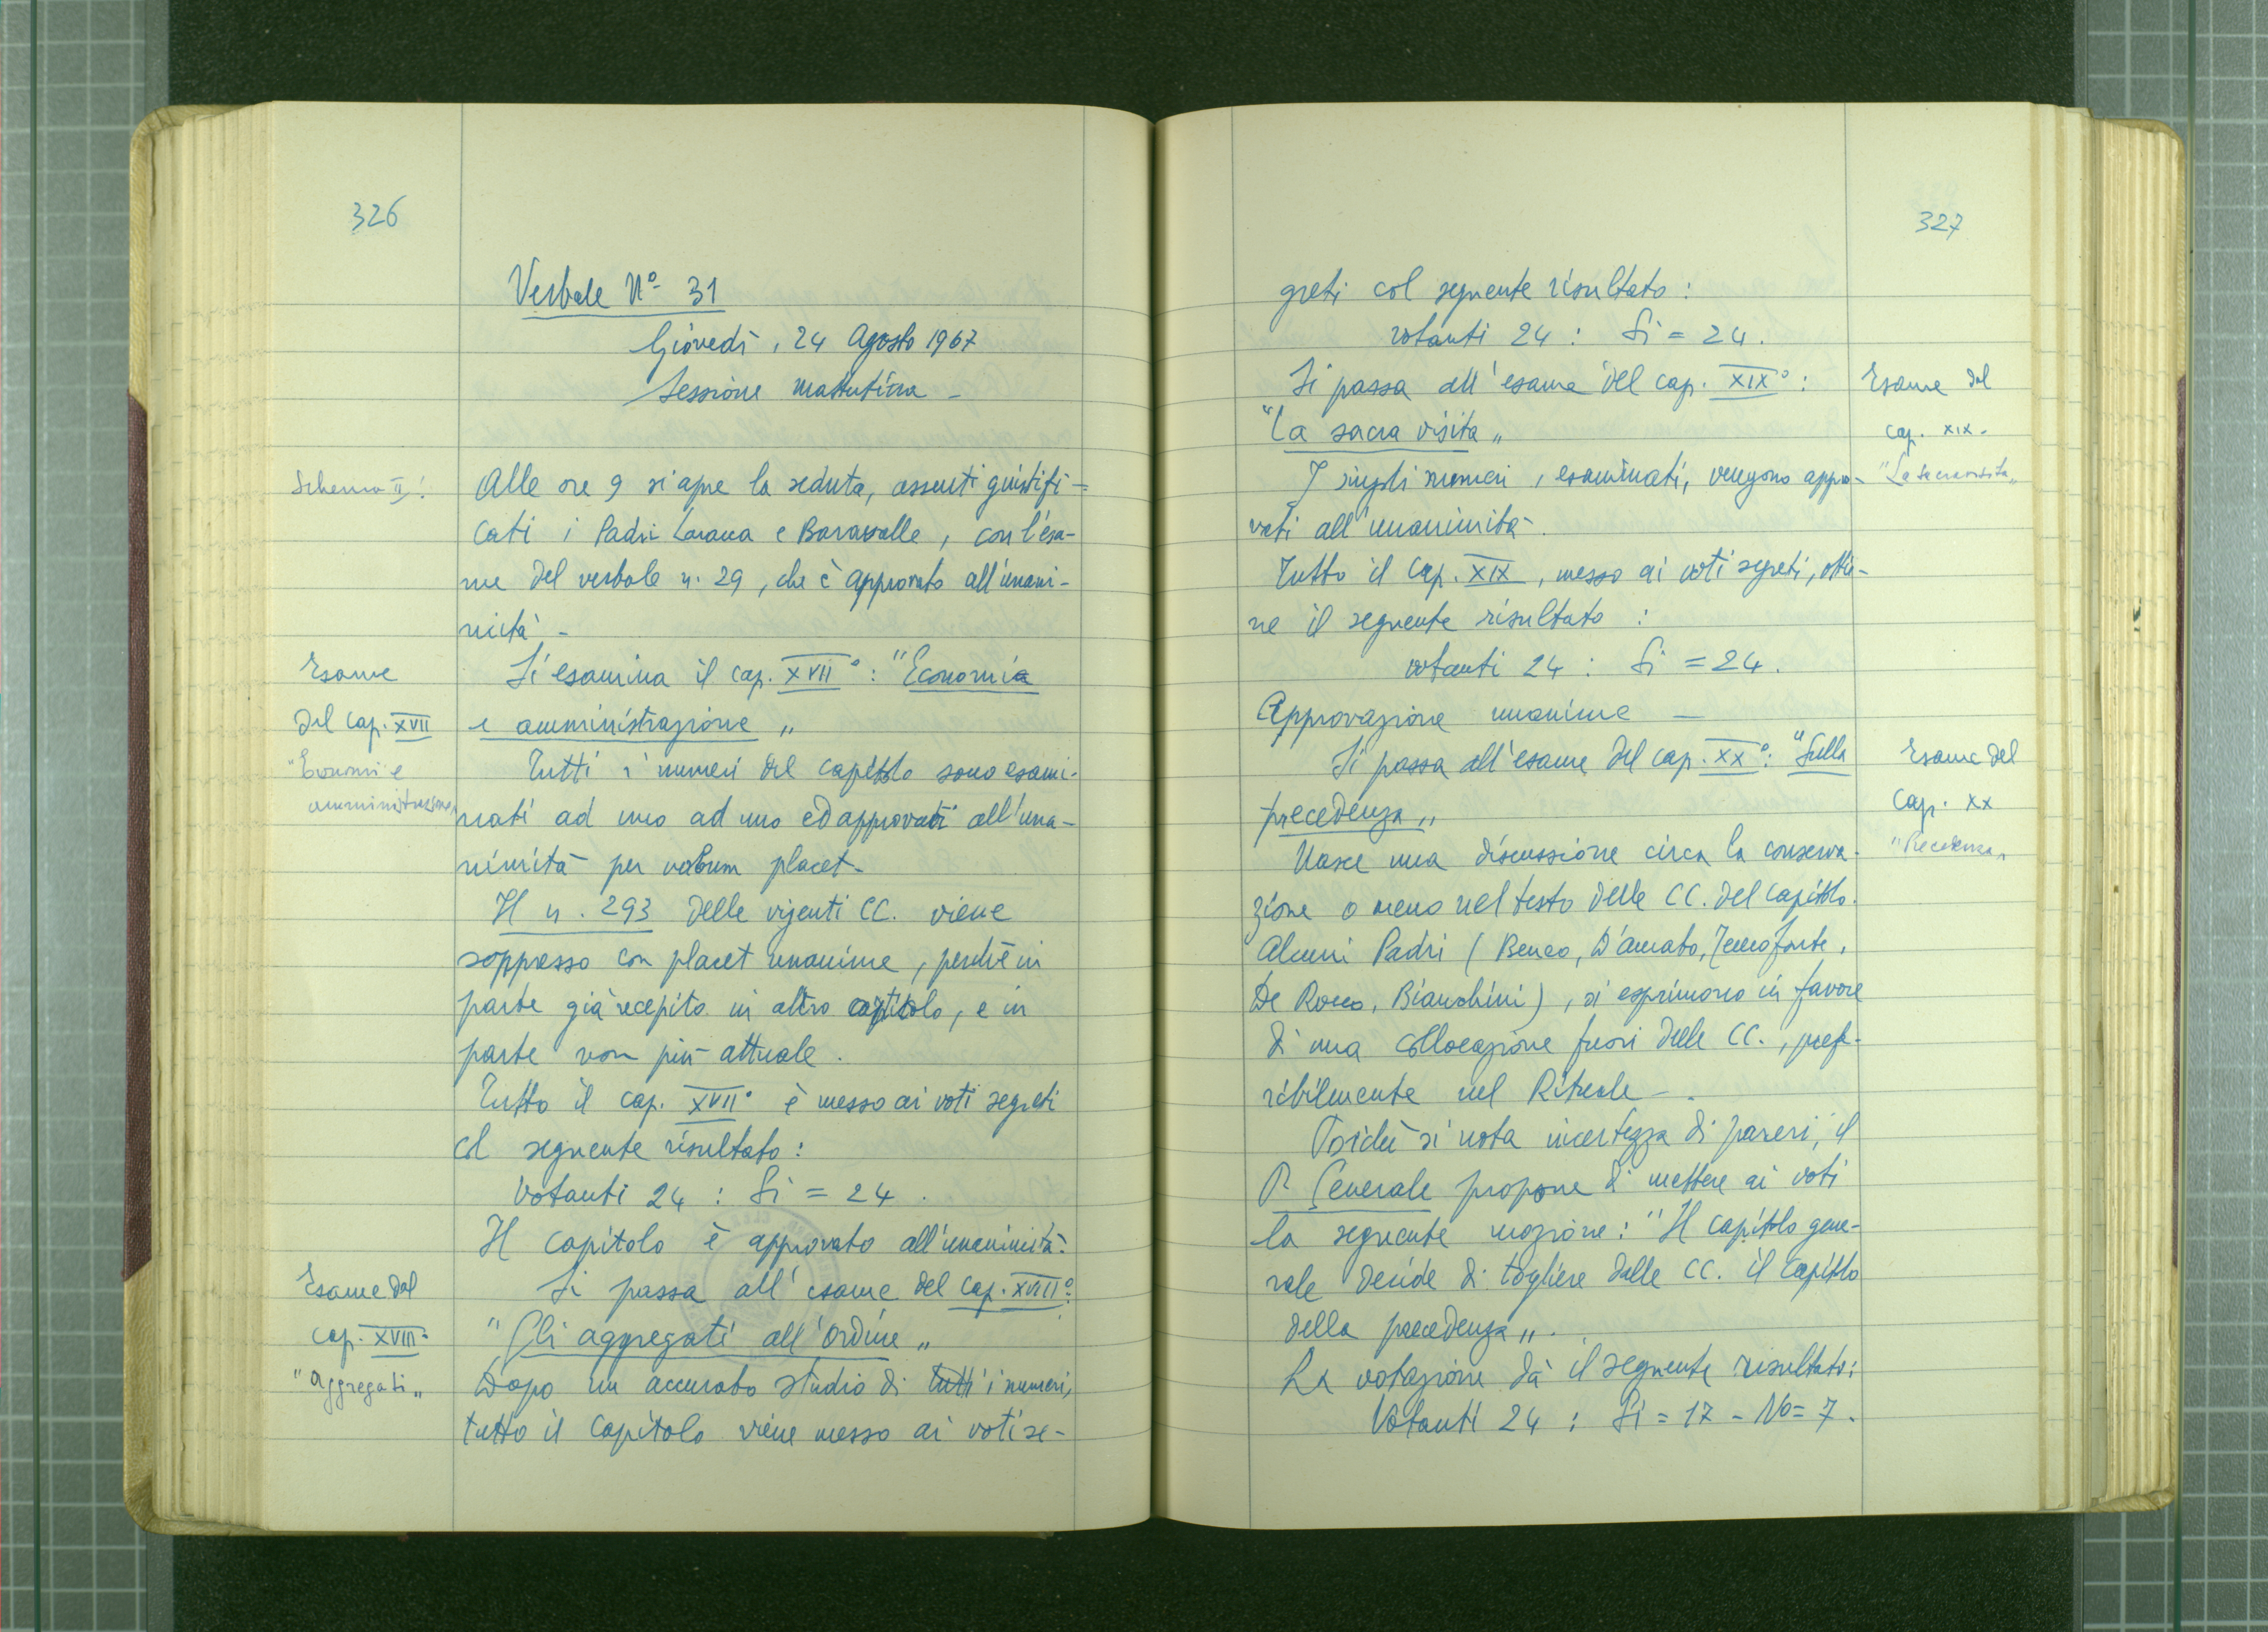 326
Verbale N° 31
Giovedì, 24 Agosto 1967
Sessione mattutina -
Schema II!
Alle ore 9 si apre la seduta, assenti giustifi=
cati i Padri e Baravalle, con l'esa-
me del verbale n. 29, che è approvato all'unani-
mità. -
Esame
del cap. XVII
"Econom. e
amministrazione"
Si esamina il cap. XVII°: "Economia
e amministrazione"
Tutti i numeri del capitolo sono esami-
nati ad uno ad uno ed approvati all'una-
nimità per verbum placet -
Il n. 293 delle vigenti CC. viene
soppresso con placet unanime, perché in
parte già recepito in altro capitolo, e in
parte non più attuale.
Tutto il cap. XVII° è messo ai voti segreti
col seguente risultato:
Votanti 24 : Si = 24.
Il capitolo è approvato all'unanimità.
Esame del
cap. XVIII°
"Aggregati"
Si passa all'esame del cap. XVIII°:
"Gli aggregati all'Ordine"
Dopo un accurato studio di tutti i numeri,
tutto il capitolo viene messo ai voti se-
327
greti col seguente risultato:
votanti 24 : Si = 24.
Si passa all'esame del cap. XIX°:
"La sacra visita"
Esame del
cap. XIX -
"La sacra visita"
I singoli numeri, esaminati, vengono appro-
vati all'unanimità -.
Tutto il Cap. XIX, messo ai voti segreti, ottie-
ne il seguente risultato :
votanti 24 : Si = 24.
Approvazione unanime -
Si passa all'esame del cap. XX°: "Sulla
precedenza"
Esame del
Cap. XX
"Precedenza"
Nasce una discussione circa la conserva-
zione o meno nel testo delle CC. del capitolo.
Alcuni Padri (Benco, D'Amato, Tenneforte,
De Rocco, Bianchini), si esprimono in favore
di una collocazione fuori delle CC., prefe-
ribilmente nel Rituale -.
Poiché si nota incertezza di pareri, il
P. Generale propone di mettere ai voti
la seguente mozione: "Il capitolo gene-
rale decide di togliere dalle CC. il capitolo
della precedenza".
La votazione dà il seguente risultato:
Votanti 24 : Si = 17 - No = 7.